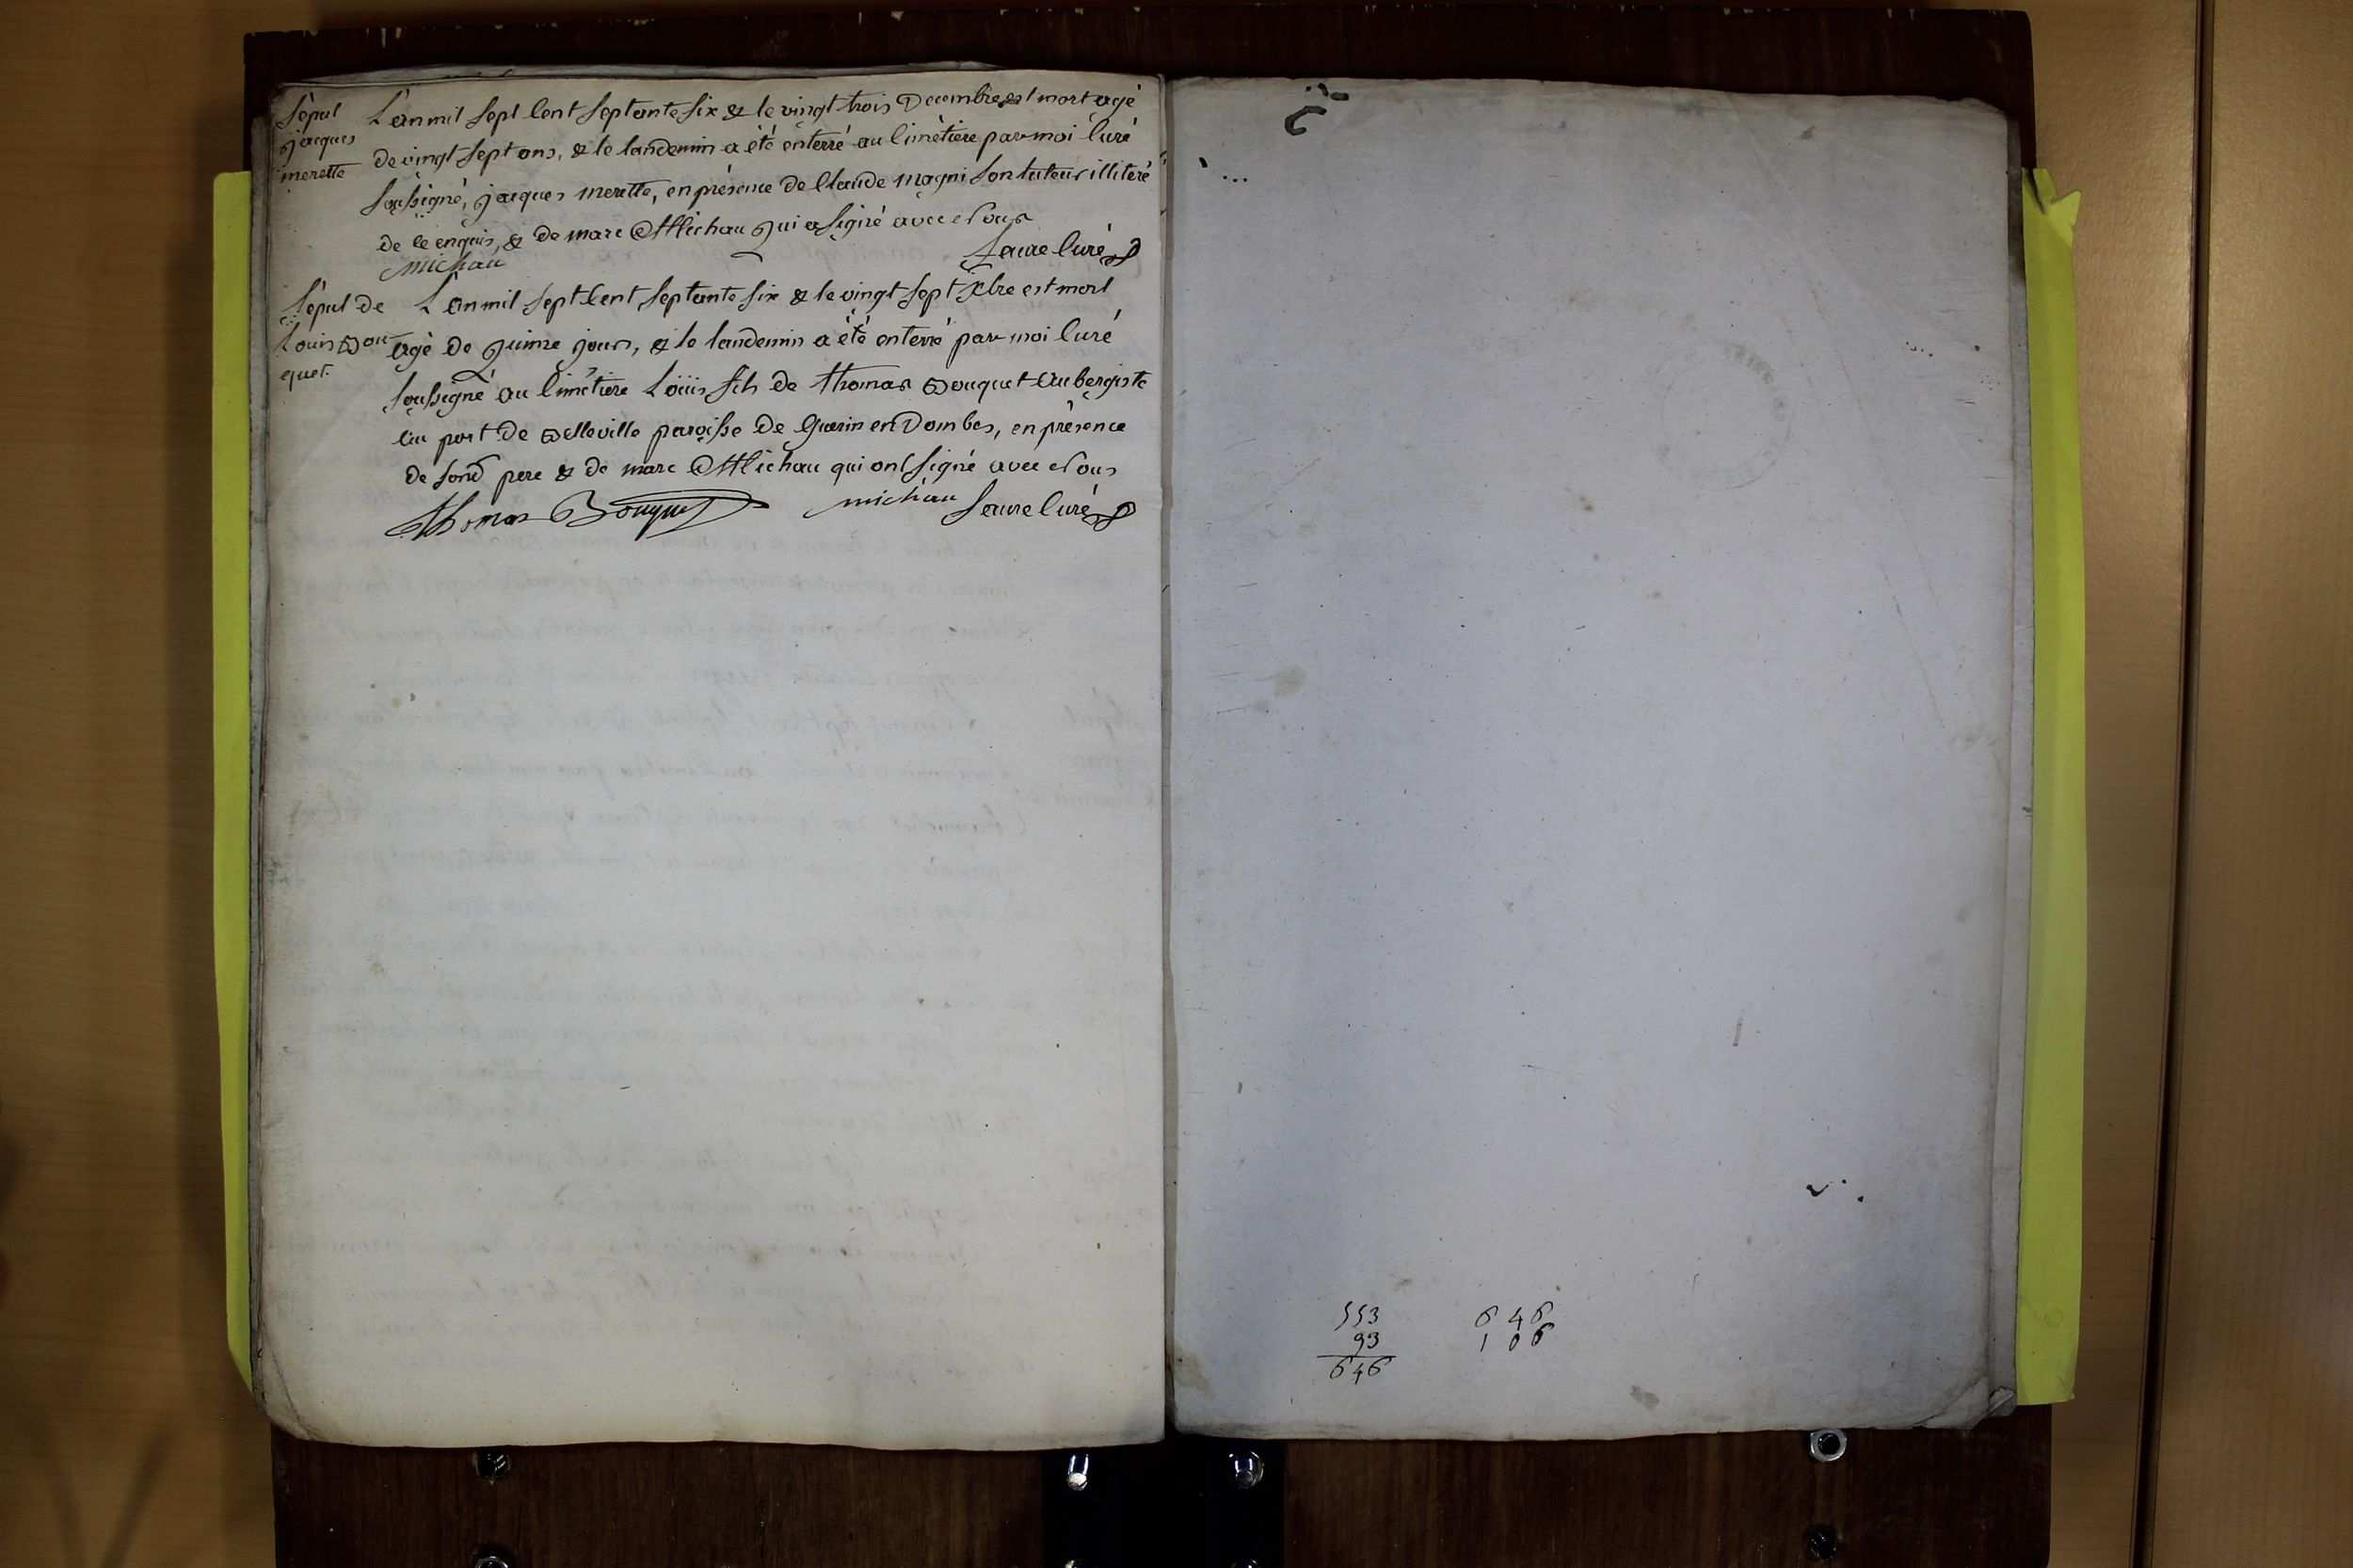 Sépul
jacques
merette
L'an mil sept Cent septante six & le vingt trois Decembre est mort agé
de vingt sept ans, & le landemin a été enterré au Cimètiere par moi Curé
soussigné, jacques merette, en présence de Claude magni son tuteur illiteré
de ce enquis, & de marc Michau qui a signé avec Nous
michau Faure Curé
Sépul de
Louis Bou
quet
L'an mil sept Cent septante six & le vingt sept Xbre est mort
agé de quinze jours, & le landemin a été enterré par moi Curé
soussigné au Cimètiere Loüis fils de thomas Bouquet Aubergiste
au port de Belleville paroisse de Guerin en Dombes, en présence
de sond pere & de marc Michau qui ont signé avec Nous
thomas Bouquet michau faure Curé
553
93
646
646
106